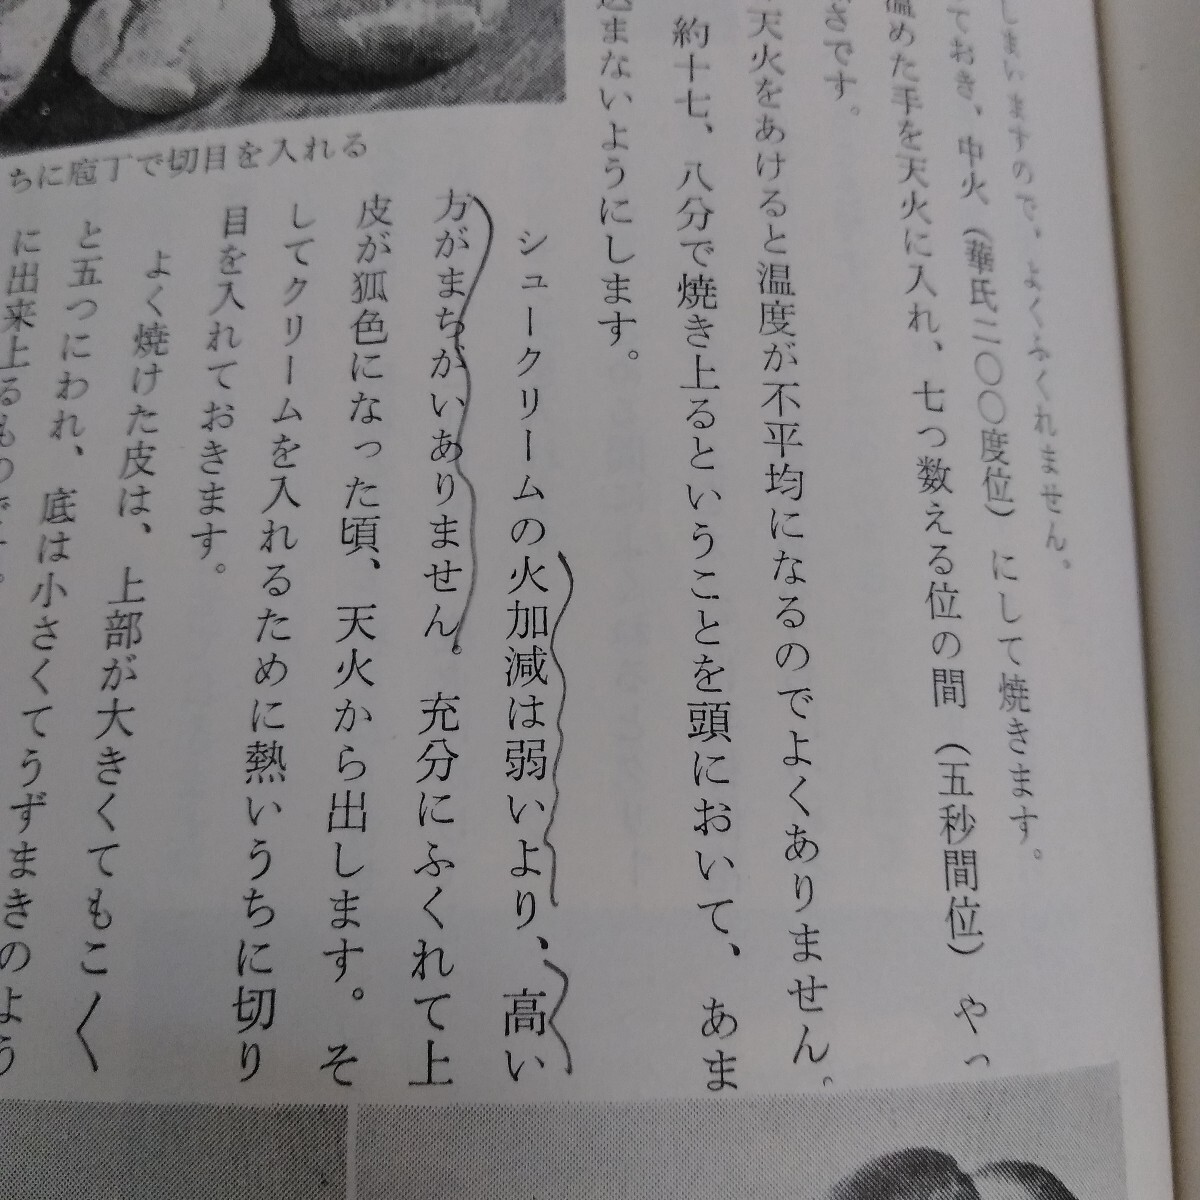 しまいますので、よくふくれません。
ておき、中火(華氏二〇〇度位)にして焼きます。
温めた手を天火に入れ、七つ数える位の間(五秒間位)やっ
さです。
天火をあけると温度が不平均になるのでよくありません。
約十七、八分で焼き上るということを頭において、あま
込まないようにします。
ちに庖丁で切目を入れる
シュークリームの火加減は弱いより、高い
方がまちがいありません。充分にふくれて上
皮が狐色になった頃、天火から出します。そ
してクリームを入れるために熱いうちに切り
目を入れておきます。
よく焼けた皮は、上部が大きくてもこ〱
と五つにわれ、底は小さくてうずまきのよう
に出来上るものです。